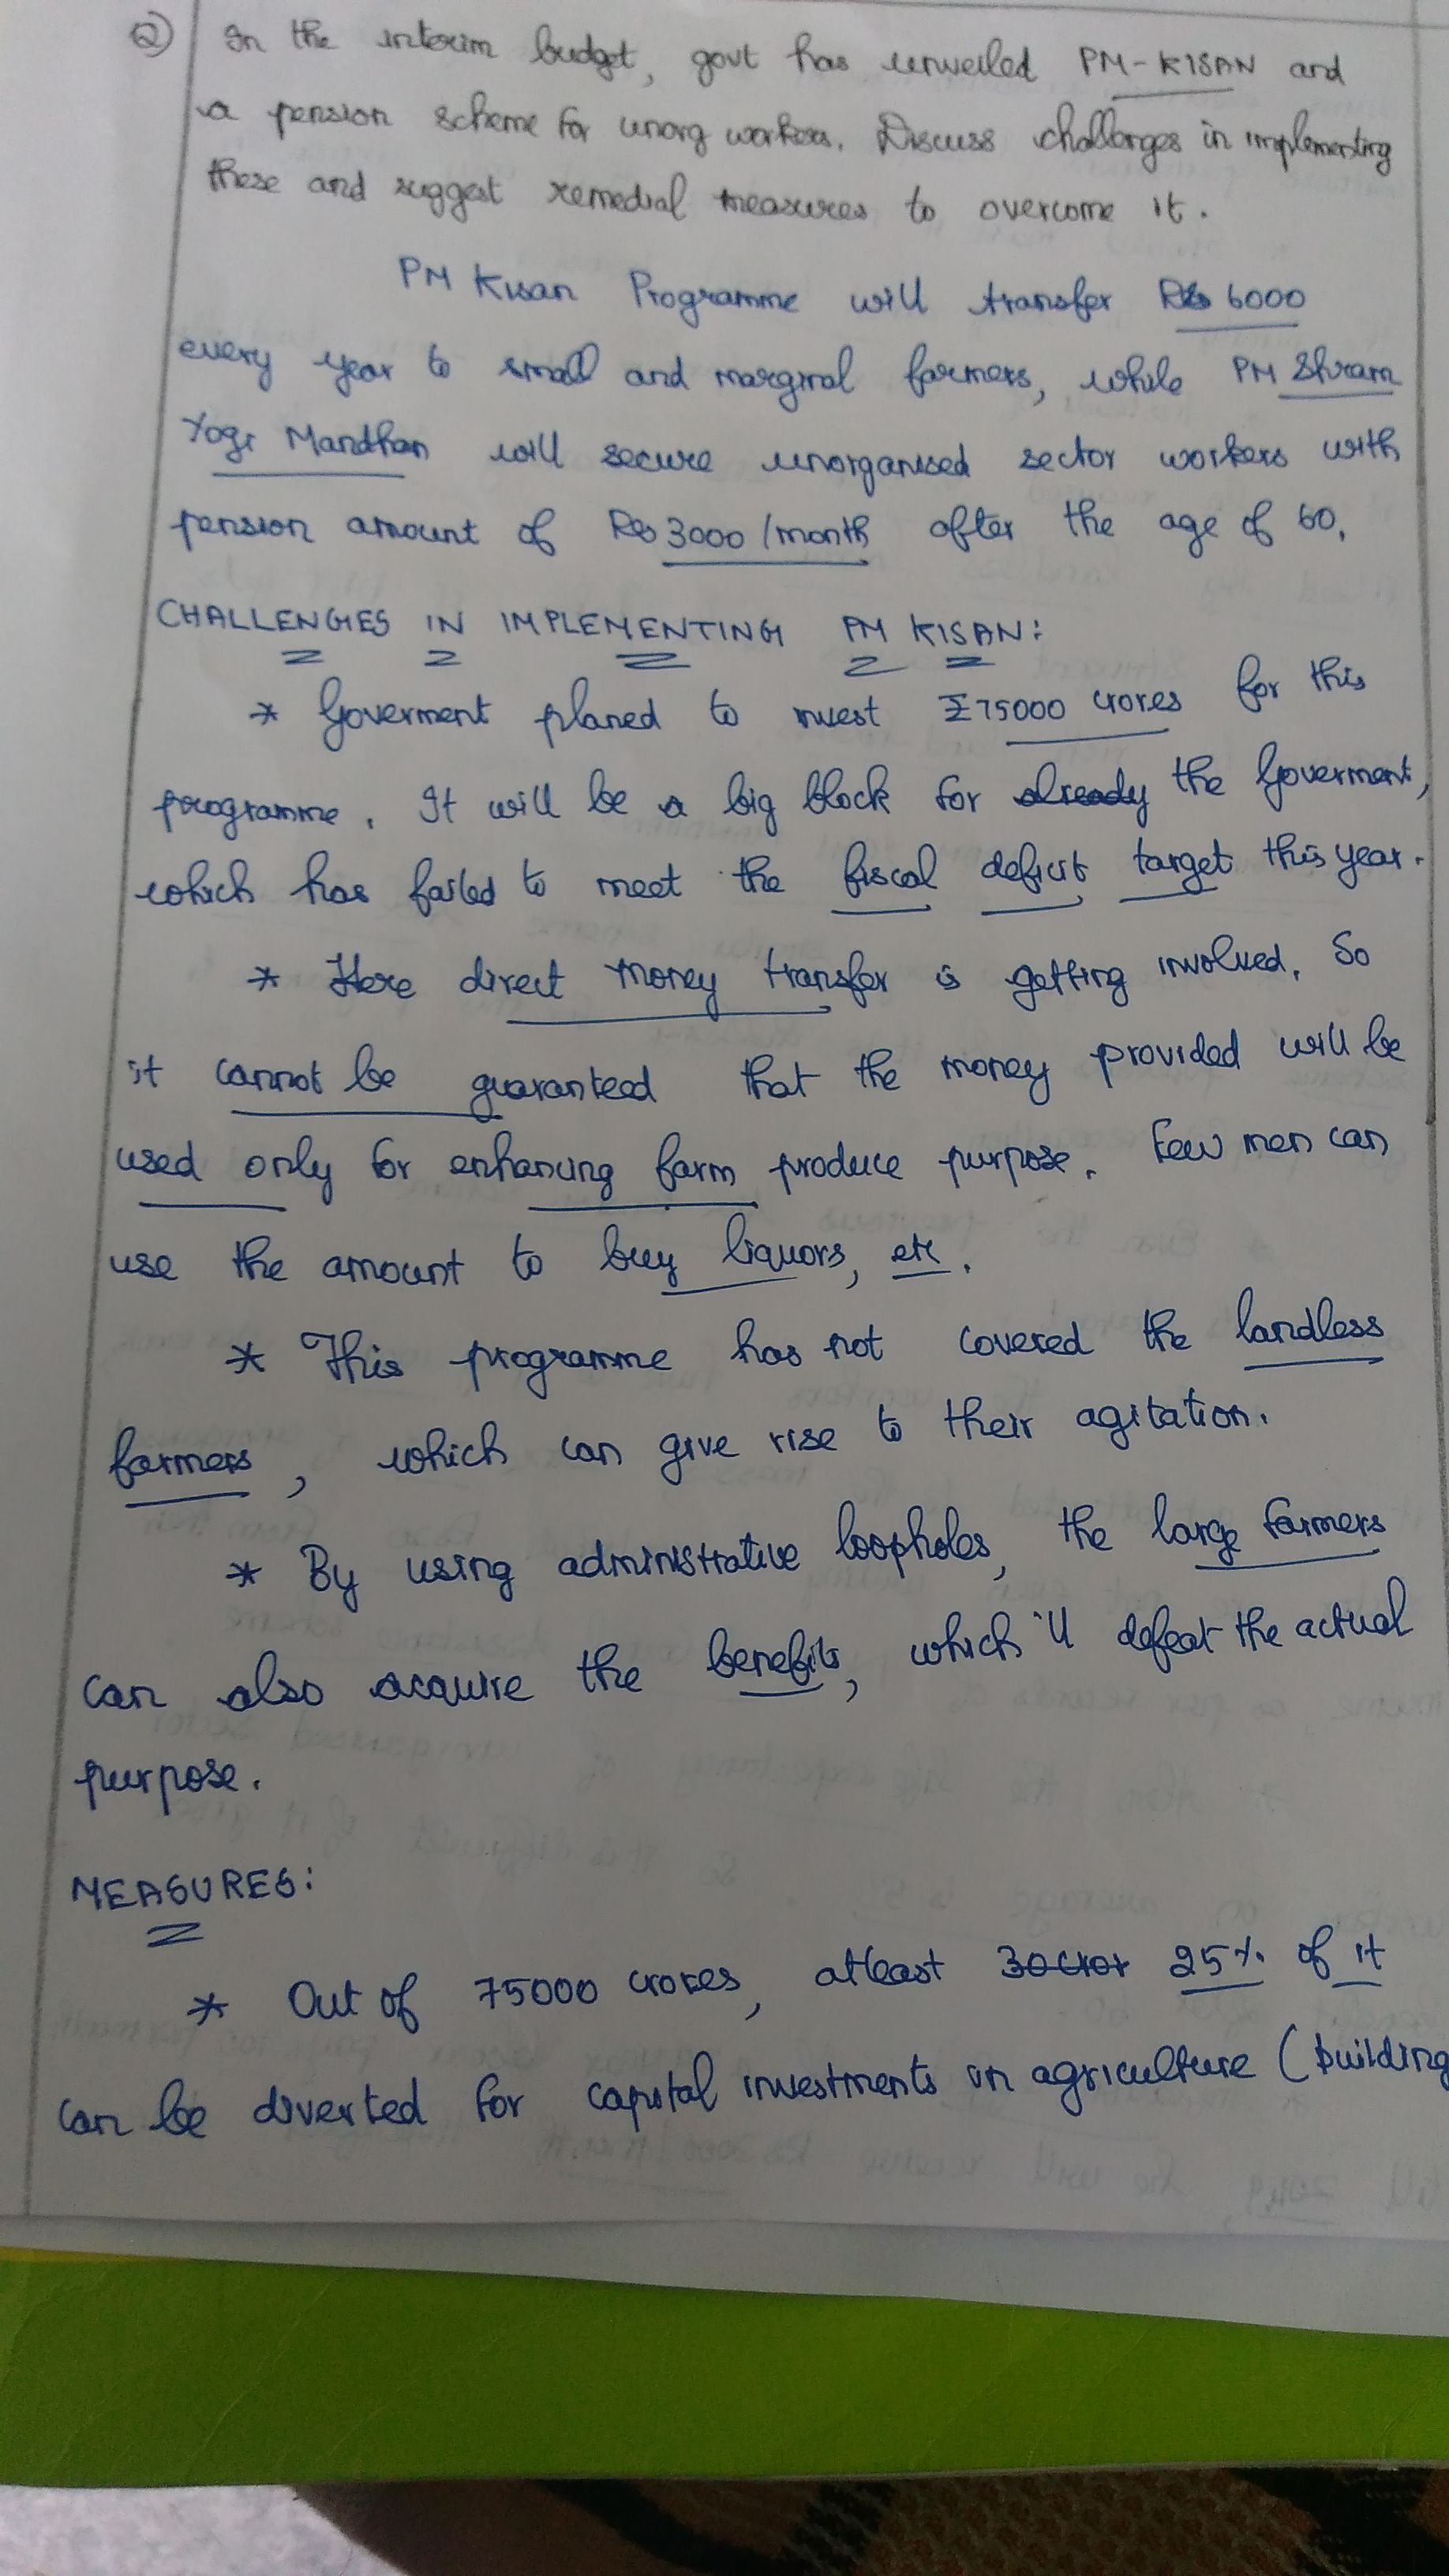 Q) In the interim budget, govt has unveiled PM-KISAN and
a pension scheme for unorg workers. Discuss challenges in implementing
these and suggest remedial measures to overcome it.
PM Kisan Programme will transfer Rs 6000
every year to small and marginal farmers, while PM Shram
Yogi Mandhan will secure unorganised sector workers with
pension amount of Rs 3000 /month after the age of 60.
CHALLENGES IN IMPLEMENTING PM KISAN:
* Goverment planed to invest ₹75000 crores for this
programme. It will be a big block for already the Goverment,
which has failed to meet the fiscal deficit target this year.
* Here direct money transfer is getting involved. So
it cannot be guaranteed that the money provided will be
used only for enhancing farm produce purpose. Few men can
use the amount to buy liquors, etc.
* This programme has not covered the landless
farmers, which can give rise to their agitation.
* By using administrative loopholes, the large farmers
can also acquire the benefits, which 'll defeat the actual
purpose.
MEASURES:
* Out of 75000 crores, atleast 30 cror 25% of it
can be diverted for capital investments in agriculture (building